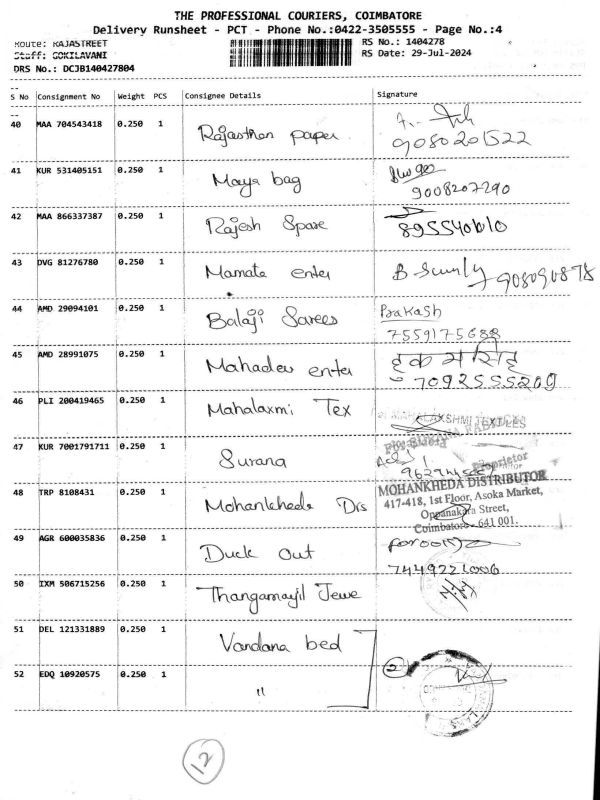 THE PROFESSIONAL COURIERS, COIMBATORE
Delivery Runsheet - PCT - Phone No.:0422-3505555 - Page No.:4
Route: RAJASTREET
RS No.: 1404278
Staff: GOKILAVANI
RS Date: 29-Jul-2024
DRS No.: DCJB140427804
--
S No Consignment No Weight PCS Consignee Details Signature
--
40 MAA 704543418 0.250 1 Rajasthan paper
9080201522
41 KUR 531405151 0.250 1 Maya bag
9008207290
42 MAA 866337387 0.250 1 Rajesh Spare
43 DVG 81276780 0.250 1 Mamata enter
44 AMD 29094101 0.250 1 Balaji Sarees Prakash
7559175688
45 AMD 28991075 0.250 1 Mahadev enter
7092555209
46 PLI 200419465 0.250 1 Mahalaxmi Tex
MAHALAKSHMI TEXTILES
47 KUR 7001791711 0.250 1 Surana
Proprietor
48 TRP 8108431 0.250 1 Mohankheda Drs
MOHANKHEDA DISTRIBUTOR
417-418, 1st Floor, Asoka Market,
Oppanakara Street,
Coimbatore - 641 001.
49 AGR 600035836 0.250 1 Duck out
7449221006
50 IXM 506715256 0.250 1 Thangamayil Jewe
51 DEL 121331889 0.250 1 Vandana bed
52 EDQ 10920575 0.250 1 "
2
12